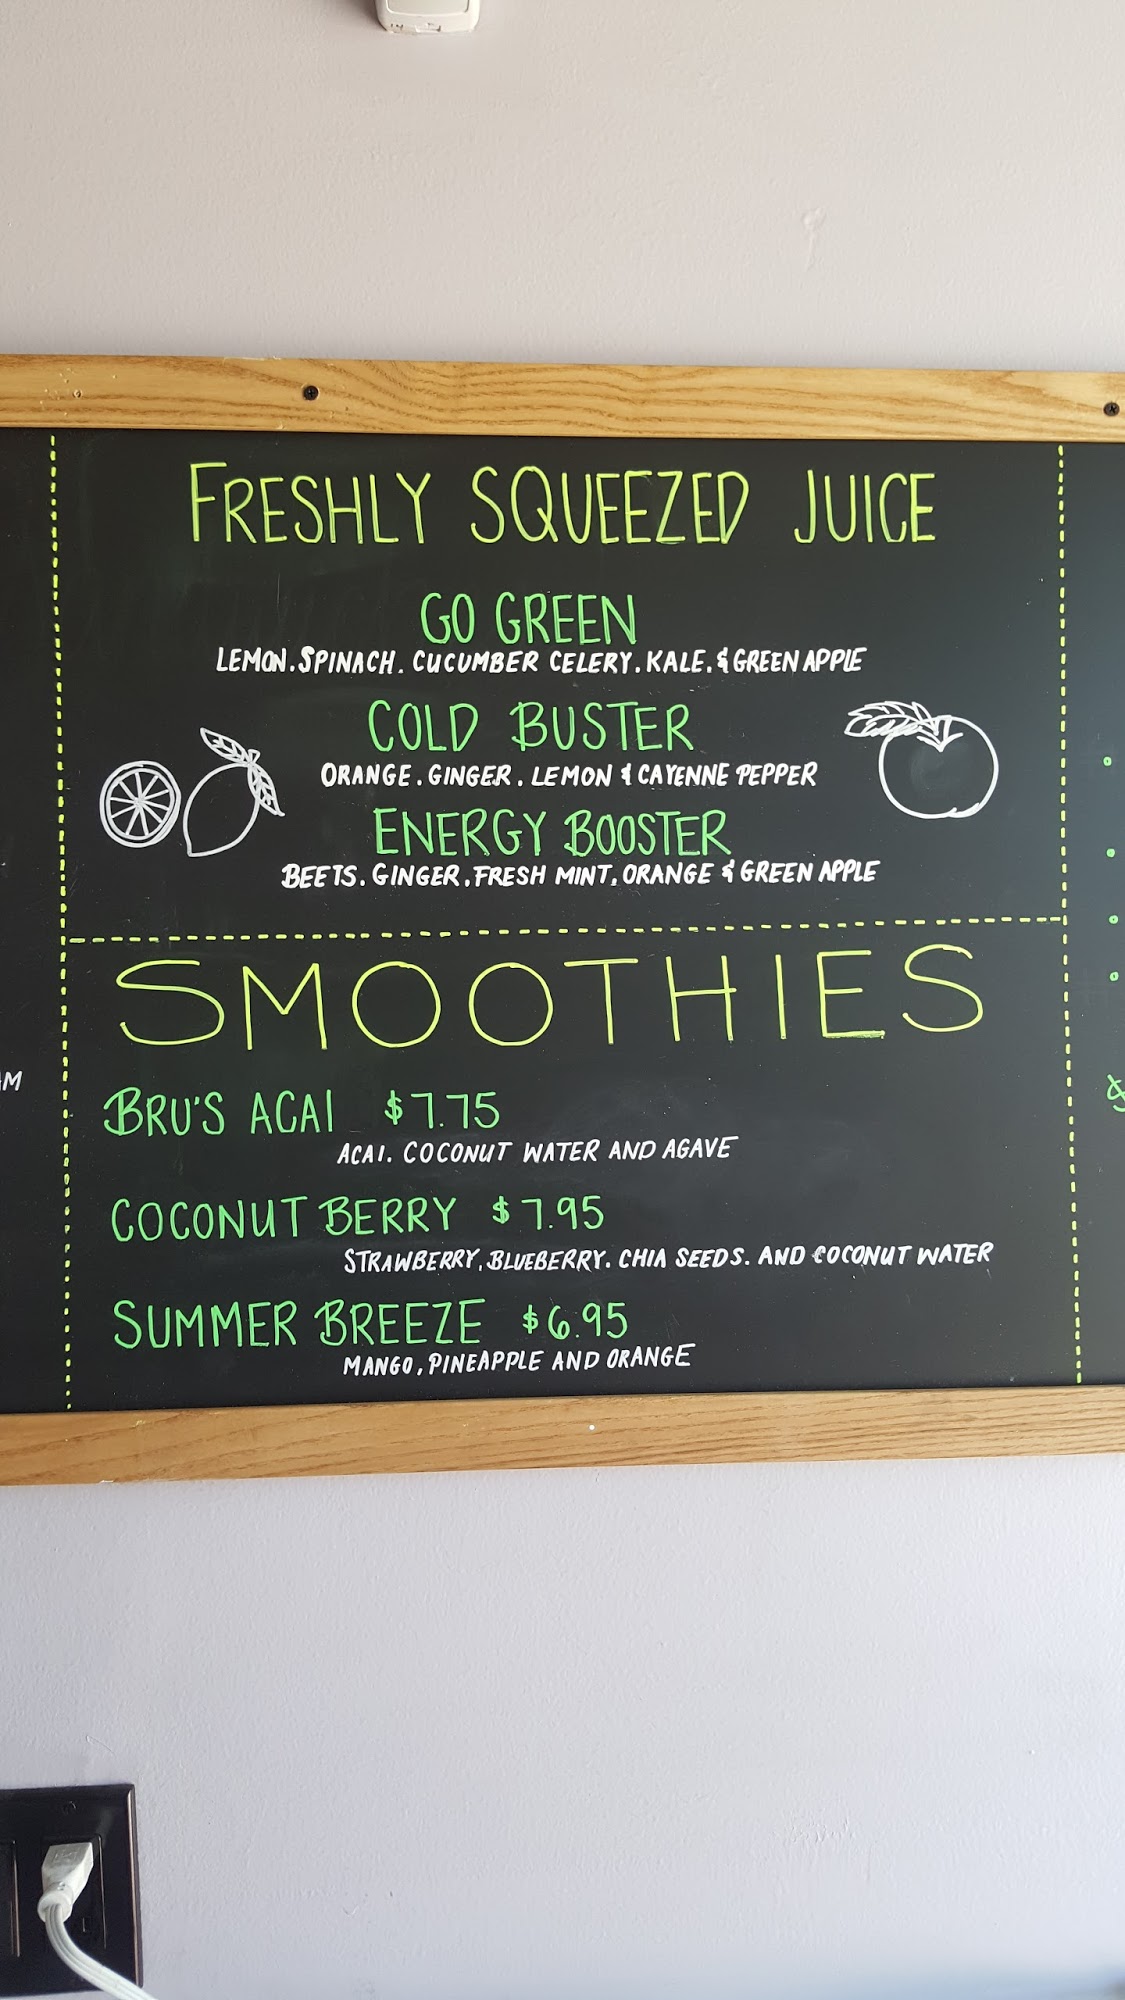 FRESHLY SQUEEZED JUICE
GO GREEN
LEMON.SPINACH. CUCUMBER CELERY. KALE. & GREEN APPLE
COLD BUSTER
ORANGE. GINGER. LEMON & CAYENNE PEPPER
ENERGY BOOSTER
BEETS. GINGER. FRESH MINT, ORANGE & GREEN APPLE
SMOOTHIES
BRU'S ACAI $7.75
ACAI. COCONUT WATER AND AGAVE
COCONUT BERRY $7.95
STRAWBERRY, BLUEBERRY. CHIA SEEDS. AND COCONUT WATER
SUMMER BREEZE $6.95
MANGO, PINEAPPLE AND ORANGE